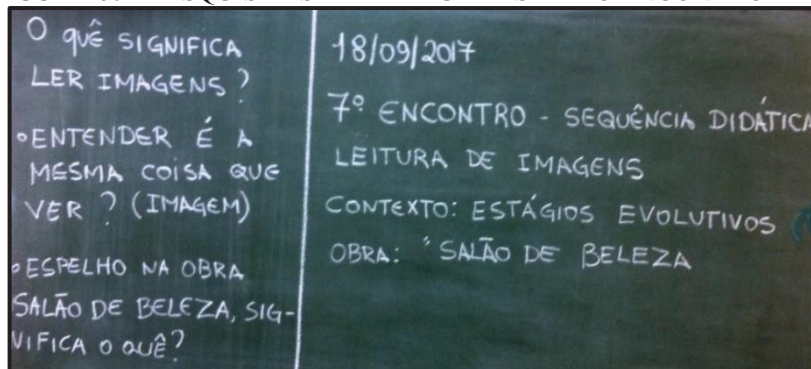 O QUÊ SIGNIFICA
LER IMAGENS?
•ENTENDER É A
MESMA COISA QUE
VER? (IMAGEM)
•ESPELHO NA OBRA
SALÃO DE BELEZA, SIG-
NIFICA O QUÊ?
18/09/2017
7º ENCONTRO - SEQUÊNCIA DIDÁTICA
LEITURA DE IMAGENS
CONTEXTO: ESTÁGIOS EVOLUTIVOS
OBRA: "SALÃO DE BELEZA